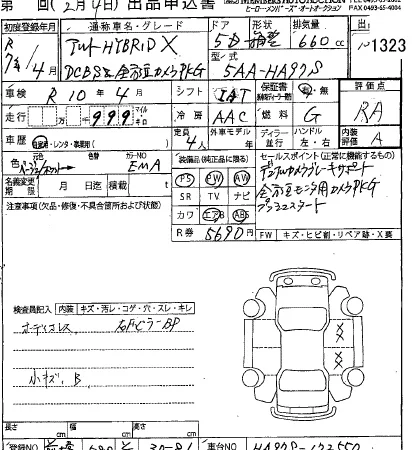 第 回(2月4日) 出品申込書
ヒーローメンバーズオートオークション
FAX 0493-65-4004
初度登録年月 通称車名・グレード ドア 形状 排気量
R 7年 4月 アルト HYBRID X 5D 箱型 660cc 1323
DCBS&全方位カメラPKG 型/式 5AA-HA97S
車検 R10年4月 シフト IAT 保証書 有・無 評価点
走行 999 マイル キロ 冷房 AAC 燃料 G RA
車歴 自家用・レンタ・事業用 定員 4人 外車モデル 年 ディーラー 並行 ハンドル 左・右 内装評価 A
色 元色 色替 カラーNO EMA 装備品(純正品に限る) セールスポイント(正常に機能するもの)
名義変更期限 月 日迄 積載 t PS PW AW デュアルカメラブレーキサポート
注意事項(欠品・修復・不具合箇所および状態) SR TV ナビ 全方位モニタ用カメラPKG
カワ エアB ABS プッシュスタート
R券 5690円 FW キズ・ヒビ割・リペア跡・X要
検査員記入 内装 キズ・汚レ・コゲ・穴・スレ・キレ
オーディオレス
小キズ、B
長さ cm 幅 cm 高さ cm
登録NO 車台NO HA97S-132550